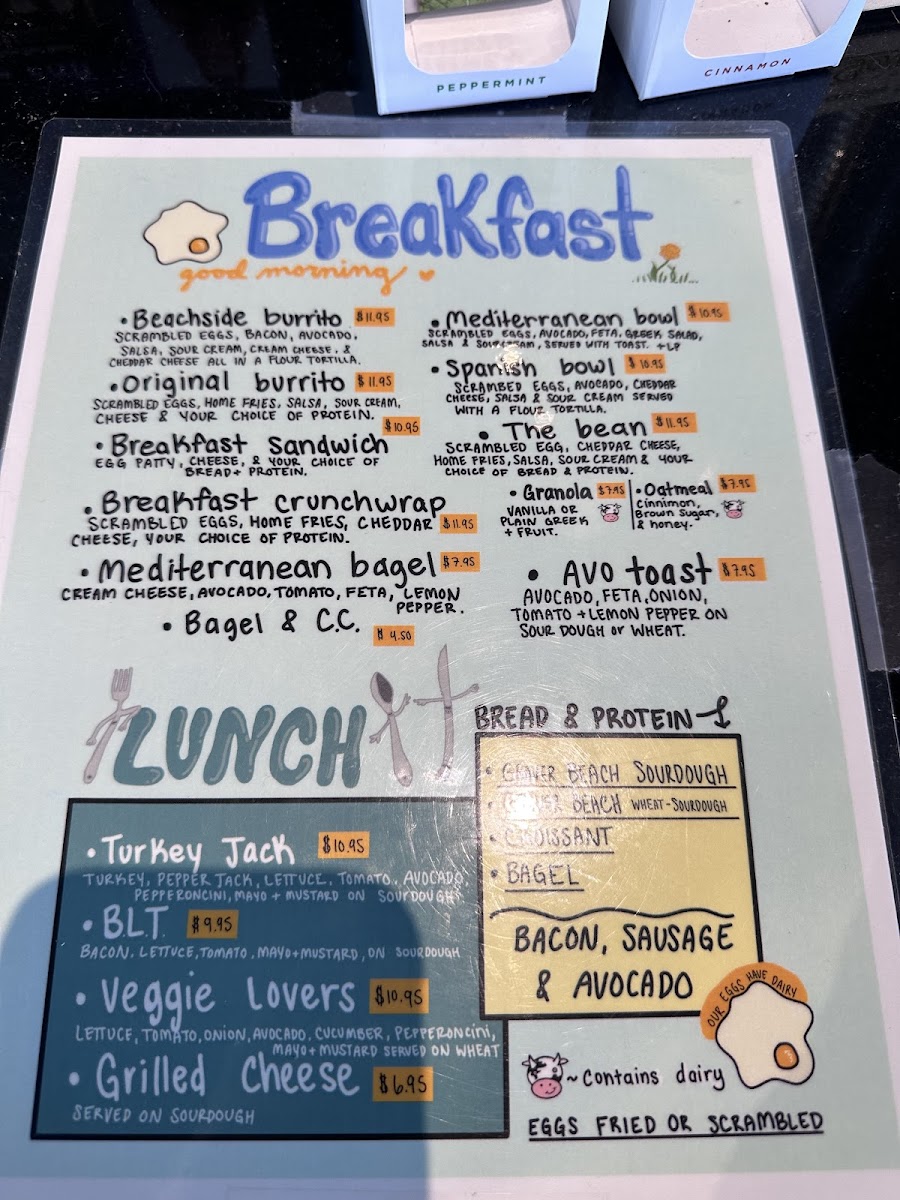 PEPPERMINT
CINNAMON
Breakfast
good morning
• Beachside burrito $11.95
SCRAMBLED EGGS, BACON, AVOCADO,
SALSA, SOUR CREAM, CREAM CHEESE, &
CHEDDAR CHEESE ALL IN A FLOUR TORTILLA.
• Original burrito $11.95
SCRAMBLED EGGS, HOME FRIES, SALSA, SOUR CREAM,
CHEESE & YOUR CHOICE OF PROTEIN.
• Breakfast sandwich $10.95
EGG PATTY, CHEESE, & YOUR CHOICE OF
BREAD + PROTEIN.
• Breakfast crunchwrap
SCRAMBLED EGGS, HOME FRIES, CHEDDAR $11.95
CHEESE, YOUR CHOICE OF PROTEIN.
• Mediterranean bagel $7.95
CREAM CHEESE, AVOCADO, TOMATO, FETA, LEMON
PEPPER.
• Bagel & C.C. $4.50
• Mediterranean bowl $10.95
SCRAMBLED EGGS, AVOCADO, FETA, GREEK SALAD,
SALSA & SOUR CREAM, SERVED WITH TOAST. + LP
• Spanish bowl $10.95
SCRAMBED EGGS, AVOCADO, CHEDDAR
CHEESE, SALSA & SOUR CREAM SERVED
WITH A FLOUR TORTILLA.
• The bean $11.95
SCRAMBLED EGG, CHEDDAR CHEESE,
HOME FRIES, SALSA, SOUR CREAM & YOUR
CHOICE OF BREAD & PROTEIN.
• Granola $7.95
VANILLA OR
PLAIN GREEK
+ FRUIT.
• Oatmeal $7.95
Cinnimon,
Brown Sugar,
& honey.
• AVO toast $7.95
AVOCADO, FETA, ONION,
TOMATO + LEMON PEPPER ON
SOUR DOUGH or WHEAT.
LUNCH
• Turkey Jack $10.95
TURKEY, PEPPER JACK, LETTUCE, TOMATO, AVOCADO,
PEPPERONCINI, MAYO + MUSTARD ON SOURDOUGH
• BLT $9.95
BACON, LETTUCE, TOMATO, MAYO + MUSTARD, ON SOURDOUGH
• Veggie Lovers $10.95
LETTUCE, TOMATO, ONION, AVOCADO, CUCUMBER, PEPPERONCINI,
MAYO + MUSTARD SERVED ON WHEAT
• Grilled Cheese $6.95
SERVED ON SOURDOUGH
BREAD & PROTEIN
• GROVER BEACH SOURDOUGH
• GROVER BEACH WHEAT-SOURDOUGH
• CROISSANT
• BAGEL
BACON, SAUSAGE
& AVOCADO
OUR EGGS HAVE DAIRY
~ contains dairy
EGGS FRIED OR SCRAMBLED